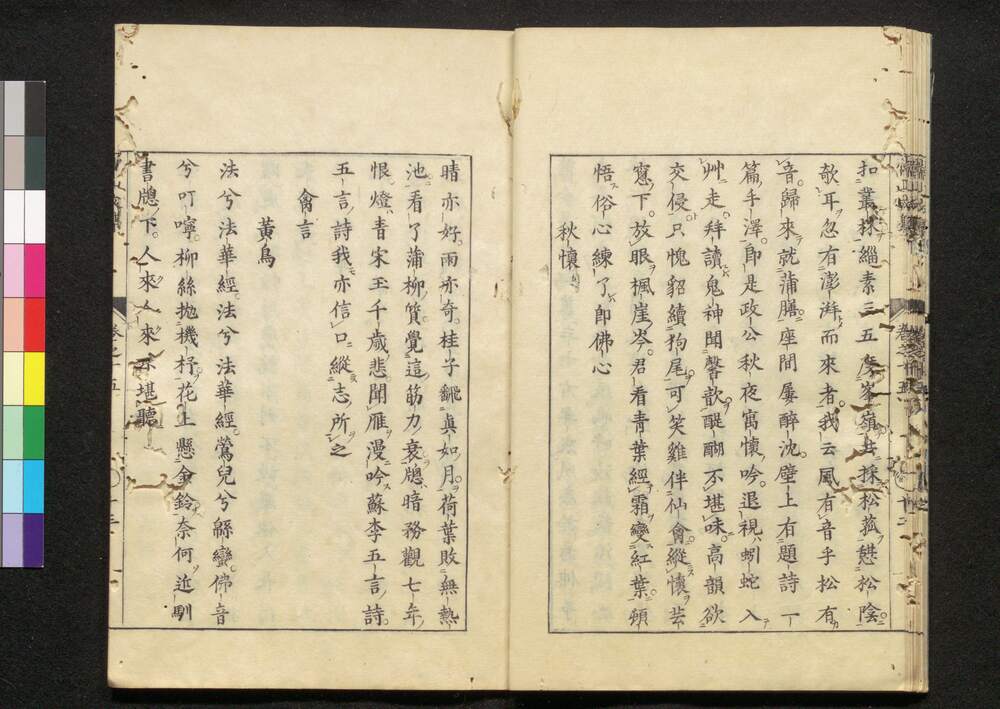 扣業採緇素三五摩峯嶺去採松菰憇松陰
欹耳忽有澎湃而來者我云風有音乎松有
音歸來就蒲膳座間屢醉沈壁上有題詩一
篇手澤卽是政公秋夜寓懷吟退視蚓蛇入
艸走拜讀鬼神聞馨歆醍醐不堪味高韻欲
交侵只愧貂續狗尾可笑雞伴仙禽縱懷芸
窻下放眼楓崖岑君看靑葉經霜變紅葉頓
悟俗心練了卽佛心
秋懷
晴亦好雨亦奇桂子飜眞如月荷葉敗無熱
池看了蒲柳質覺這筋力衰牎暗務觀七年
恨燈靑宋玉千歲悲聞雁漫吟蘇李五言詩
五言詩我亦信口縱志所之
禽言
黃鳥
法兮法華經法兮法華經鶯兒兮緜蠻佛音
兮叮嚀柳絲拋機杼花上懸金鈴奈何近馴
書牎下人來人來不堪聽